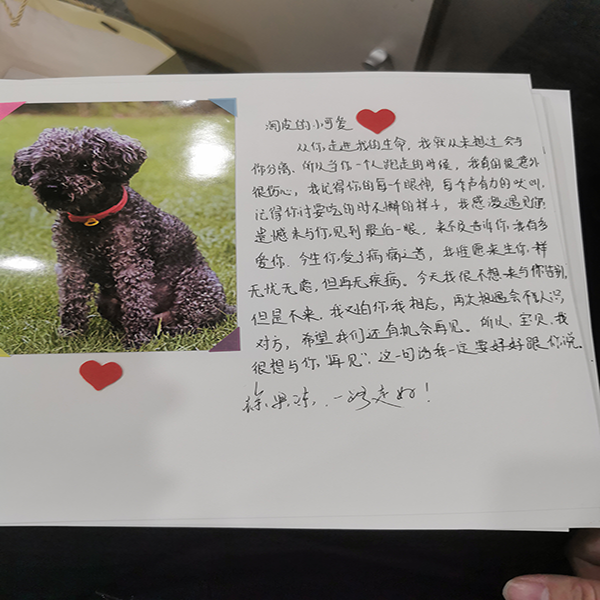 淘皮的小可爱
从你走进我的生命，我就从未想过会与
你分离。所以当你一个人跑走的时候，我真的很意外
很伤心，我记得你的每个眼神，每个声有力的吠叫，
记得你讨要吃的时不懈的样子，我感爱遇见你
遗憾未与你见到最后一眼，来不及告诉你我有多
爱你。今生你受了病痛之苦，我祝愿来生你一样
无忧无虑，但再无疾病。今天我很不想来与你告别，
但是不来，我又怕你我相忘，再次相遇会不认识
对方，希望我们还有机会再见。所以，宝贝，我
很想与你“再见”，这一句话我一定要好好跟你说。
果冻，一路走好！